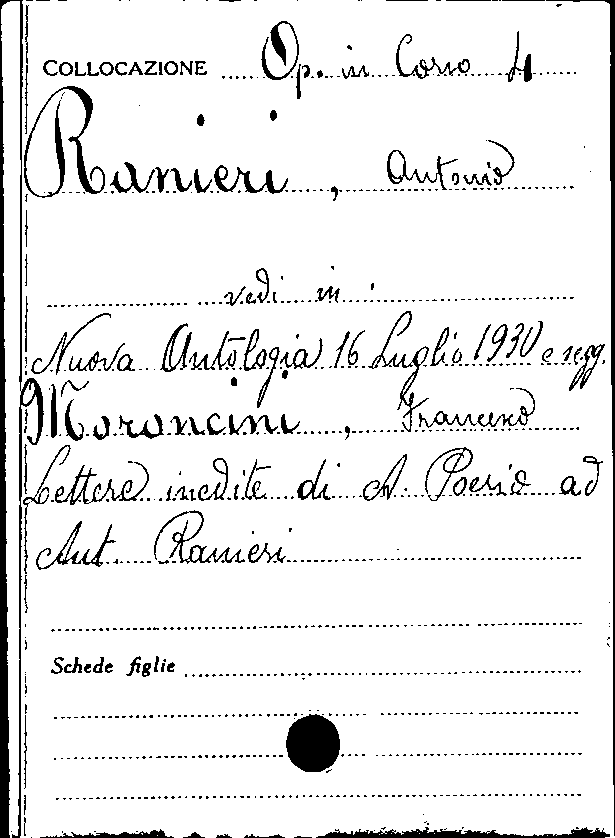 COLLOCAZIONE Op. in Corso 4
Ranieri, Antonio
vedi in:
Nuova Antologia 16 Luglio 1930 e segg.
Moroncini, Francesco
Lettere inedite di A. Poerio ad
Ant. Ranieri
Schede figlie